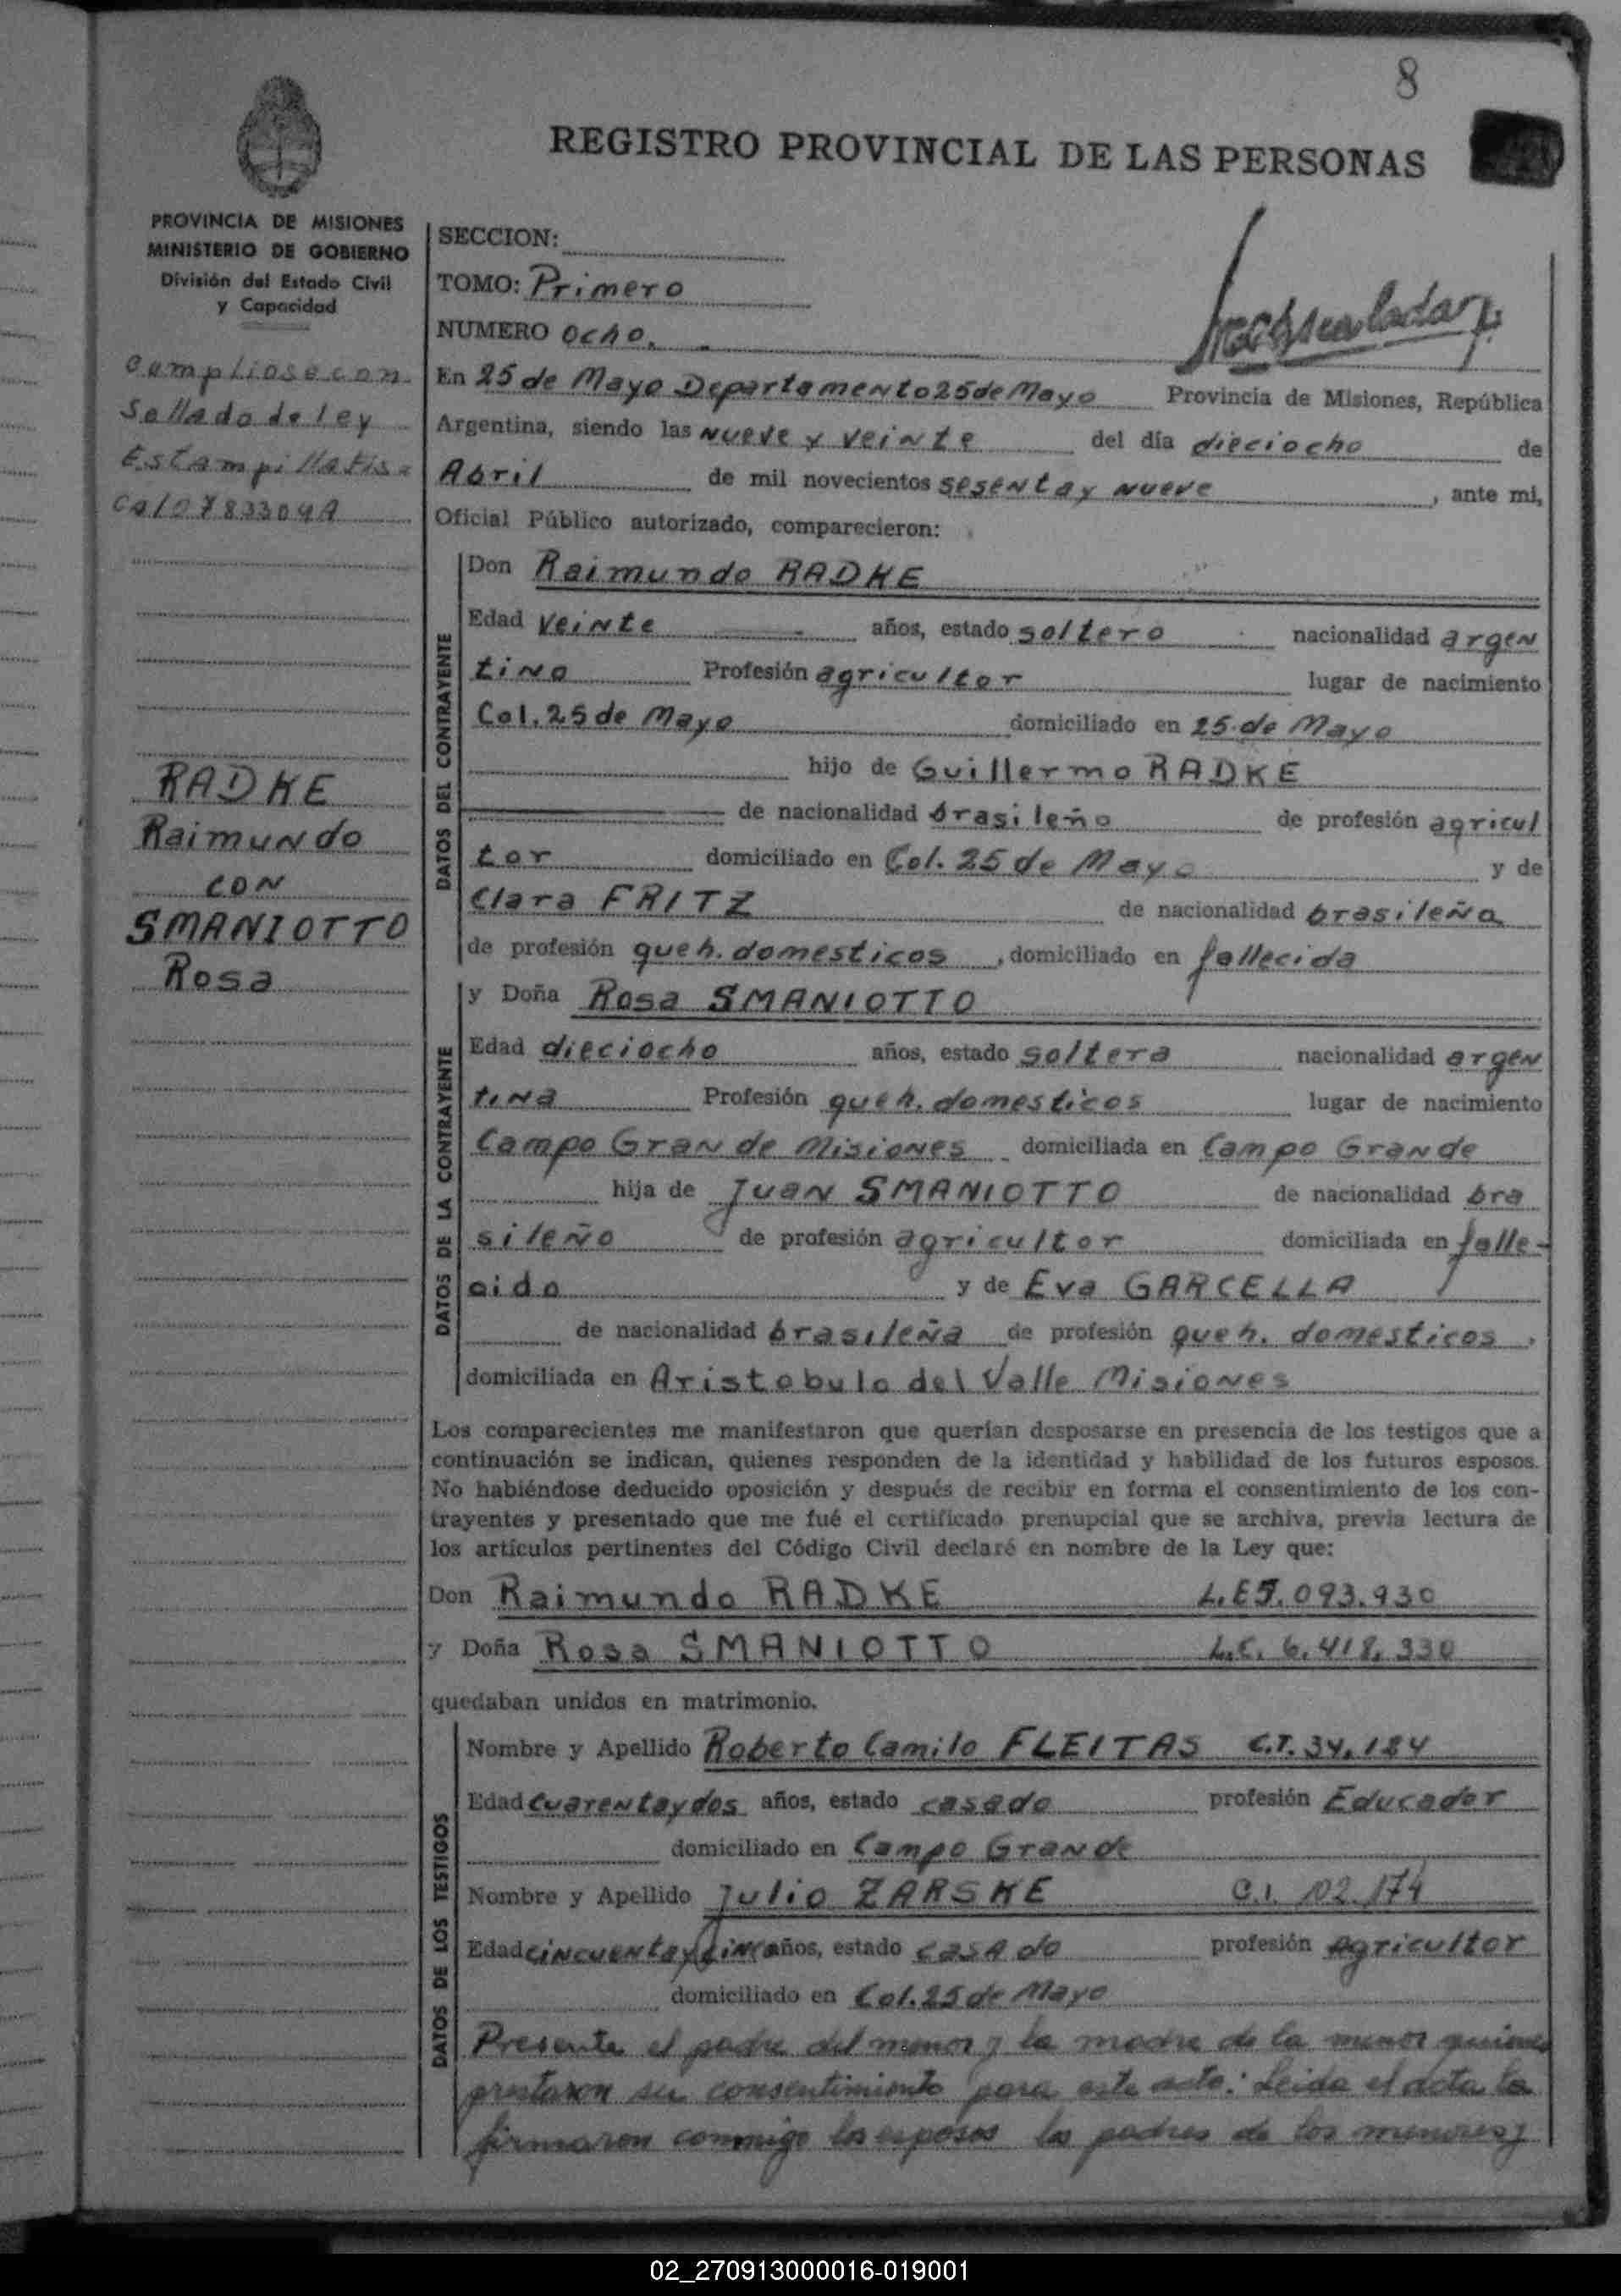 8
REGISTRO PROVINCIAL DE LAS PERSONAS
PROVINCIA DE MISIONES
MINISTERIO DE GOBIERNO
División del Estado Civil
y Capacidad
cumpliose con
Sellado de ley
SECCION:
TOMO: Primero
NUMERO ocho.
En 25 de Mayo Departamento 25 de Mayo Provincia de Misiones, República
Argentina, siendo las nueve y veinte del día dieciocho de
Abril de mil novecientos sesenta y nueve, ante mi,
Oficial Público autorizado, comparecieron:
DATOS DEL CONTRAYENTE
Don Raimundo RADKE
Edad veinte años, estado soltero nacionalidad argen
tino Profesión agricultor lugar de nacimiento
Col. 25 de Mayo domiciliado en 25 de Mayo
hijo de Guillermo RADKE
de nacionalidad brasileño de profesión agricul
tor domiciliado en Col. 25 de Mayo y de
Clara FRITZ de nacionalidad brasileña
de profesión queh. domesticos, domiciliado en fallecida
RADKE
Raimundo
con
SMANIOTTO
Rosa
DATOS DE LA CONTRAYENTE
y Doña Rosa SMANIOTTO
Edad dieciocho años, estado soltera nacionalidad argen
tina Profesión queh. domesticos lugar de nacimiento
Campo Grande Misiones domiciliada en Campo Grande
hija de Juan SMANIOTTO de nacionalidad bra
sileño de profesión agricultor domiciliada en falle-
cido y de Eva GARCELLA
de nacionalidad brasileña de profesión queh. domesticos,
domiciliada en Aristobulo del Valle Misiones
Los comparecientes me manifestaron que querían desposarse en presencia de los testigos que a
continuación se indican, quienes responden de la identidad y habilidad de los futuros esposos.
No habiéndose deducido oposición y después de recibir en forma el consentimiento de los con-
trayentes y presentado que me fué el certificado prenupcial que se archiva, previa lectura de
los artículos pertinentes del Código Civil declaré en nombre de la Ley que:
Don Raimundo RADKE L.E 5.093.930
y Doña Rosa SMANIOTTO L.C. 6.418.330
quedaban unidos en matrimonio.
DATOS DE LOS TESTIGOS
Nombre y Apellido Roberto Camilo FLEITAS C.I. 34.184
Edad cuarenta y dos años, estado casado profesión Educador
domiciliado en Campo Grande
Nombre y Apellido Julio ZARSKE C.I. 102.174
Edad cincuenta y cinc años, estado casado profesión Agricultor
domiciliado en Col. 25 de Mayo
Presente el padre del menor y la madre de la menor quienes
prestaron su consentimiento para este acto. Leida el acta la
firmaron conmigo los esposos los padres de los menores y
02_270913000016-019001